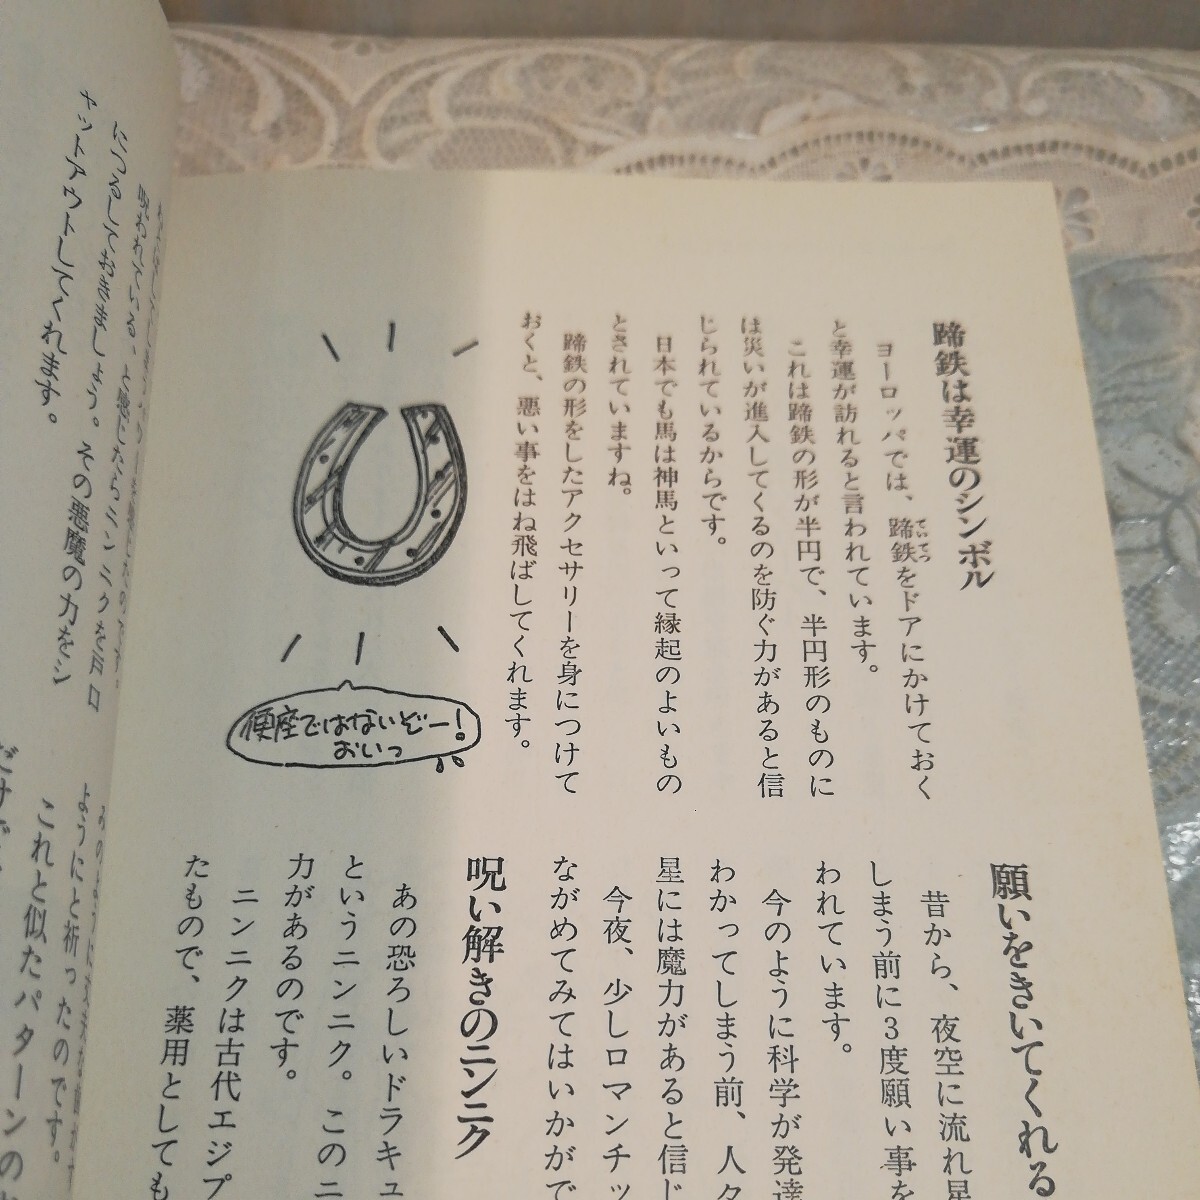 蹄鉄は幸運のシンボル
ヨーロッパでは、蹄鉄をドアにかけておく
ていてつ
と幸運が訪れると言われています。
これは蹄鉄の形が半円で、半円形のものに
は災いが進入してくるのを防ぐ力があると信
じられているからです。
日本でも馬は神馬といって縁起のよいもの
とされていますね。
蹄鉄の形をしたアクセサリーを身につけて
おくと、悪い事をはね飛ばしてくれます。
便座ではないぞー!
おいっ
願いをきいてくれる
昔から、夜空に流れ星
しまう前に3度願い事を
われています。
今のように科学が発達
わかってしまう前、人々
星には魔力があると信じ
今夜、少しロマンチッ
ながめてみてはいかがで
呪い解きのニンニク
あの恐ろしいドラキュ
というニンニク。このニ
力があるのです。
ニンニクは古代エジプ
たもので、薬用としても
呪われている、と感じたらニンニクを戸口
につるしておきましょう。その悪魔の力をシ
ャットアウトしてくれます。
ようにと祈ったのです。
これと似たパターンの